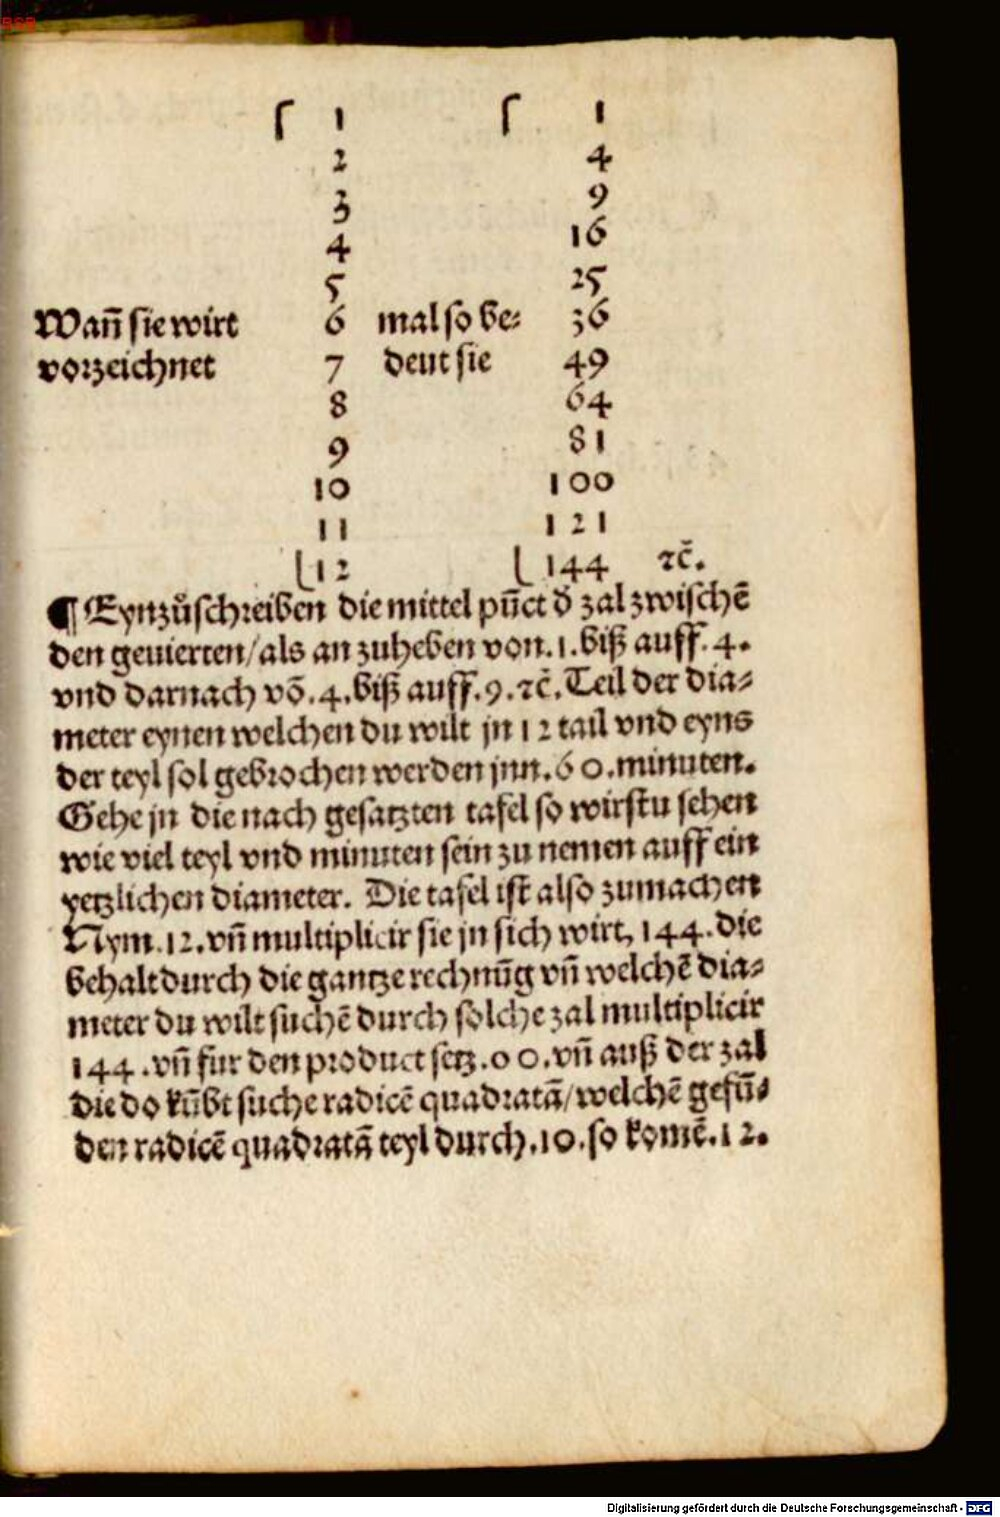 1 1
2 4
3 9
4 16
5 25
Wañ sie wirt 6 mal so be⸗ 36
vorzeichnet 7 deut sie 49
8 64
9 81
10 100
11 121
12 144 ⁊c̃.
¶ Eynzůschreiben die mittel pũct d̕ zal zwischẽ
den geuierten/als an zuheben von.1.biß auff.4.
vnd darnach võ.4.biß auff.9.⁊c̃.Teil der dia⸗
meter eynen welchen du wilt jn 12 tail vnd eyns
der teyl sol gebrochen werden jnn.60.minuten.
Gehe jn die nach gesatzten tafel so wirstu sehen
wie viel teyl vnd minuten sein zu nemen auff ein
yetzlichen diameter. Die tafel ist also zumachen
Nym.12.vñ multiplicir sie jn sich wirt, 144.die
behalt durch die gantze rechnũg vñ welchẽ dia⸗
meter du wilt suchẽ durch solche zal multiplicir
144.vñ fur den product setz.00.vñ auß der zal
die do kũbt suche radicẽ quadratã/welchẽ gefũ⸗
den radicẽ quadratã teyl durch.10.so komẽ.12.
Digitalisierung gefördert durch die Deutsche Forschungsgemeinschaft - DFG